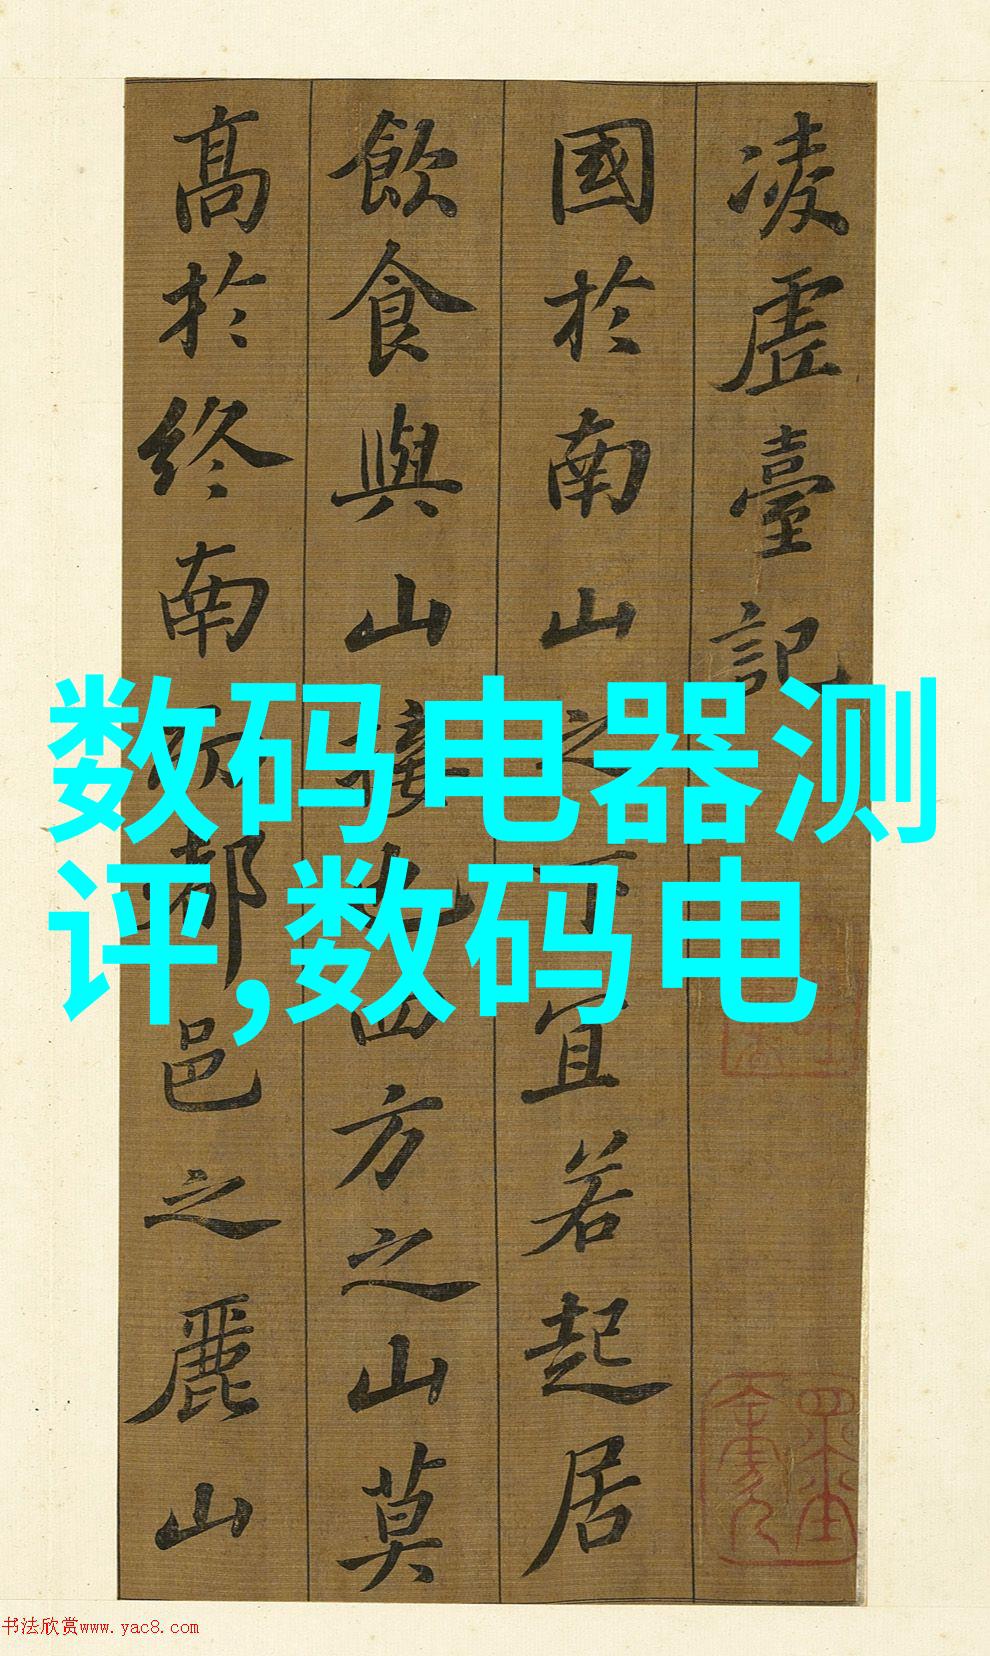 凌虛臺記
國於南山之下宜若起居
飲食與山接也四方之山莫
高於終南而都邑之麗山
数码电器测
评,数码电
书法欣赏www.yac8.com